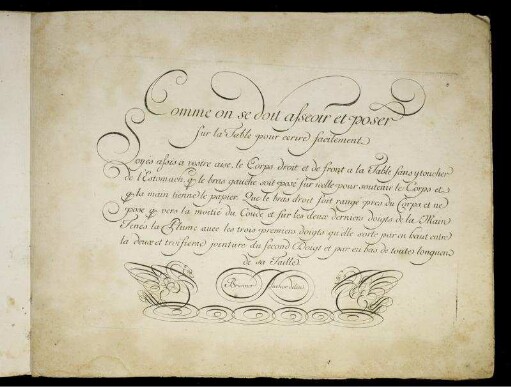 Comme on se doit asseoir et poser
sur la Table pour ecrire facilement
Soyes assis a vostre aise, le Corps droit et de front a la Table sans y toucher
de l'Estomach, q̃ le bras gauche soit posé sur icelle pour soutenir le Corps et
q̃ la main tienne le papier. Que le bras droit soit rangé pres du Corps et ne
pose q̃ vers la moitié du Coude et sur les deux derniers doigts de la Main
Tenes la Plume avec les trois premiers doigts qu'elle sorte par en haut entre
la deux et troisieme jointure du second Doigt et par en bas de toute longueur
de sa Taille